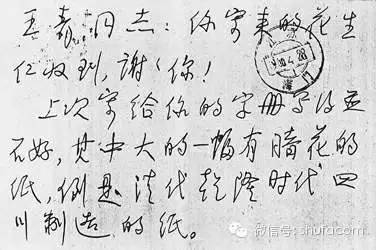 王 同志：你寄来的花生
仁收到，谢〻你！
上次寄给你的字册写得并
不好，其中大的一幅有暗花的
纸，倒是清代乾隆时代四
川制造的纸。
微信号: shufacom